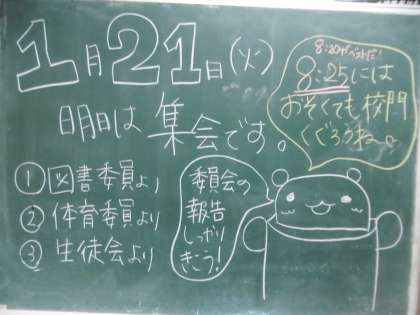 1月21日(火)
8:20がベストだ!
8:25には
おそくても校門
くぐろうねー。
明日は集会です。
①図書委員より
②体育委員より
③生徒会より
委員会の
報告
しっかり
きこう!